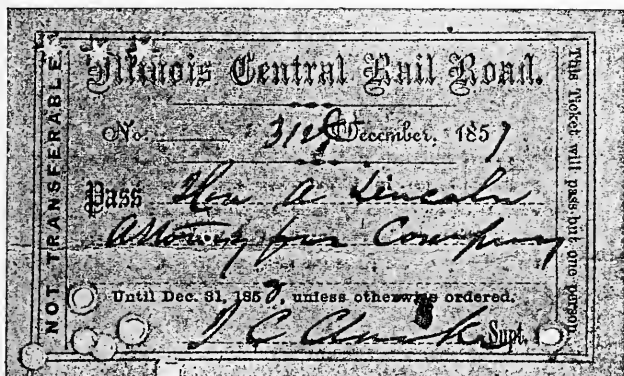 Illinois Central Rail Road.
No. 31st December, 1857
Pass Hon A Lincoln
Attorney for Company
Until Dec. 31, 1858, unless otherwise ordered.
Supt.
NOT TRANSFERABLE
This Ticket will pass but one person